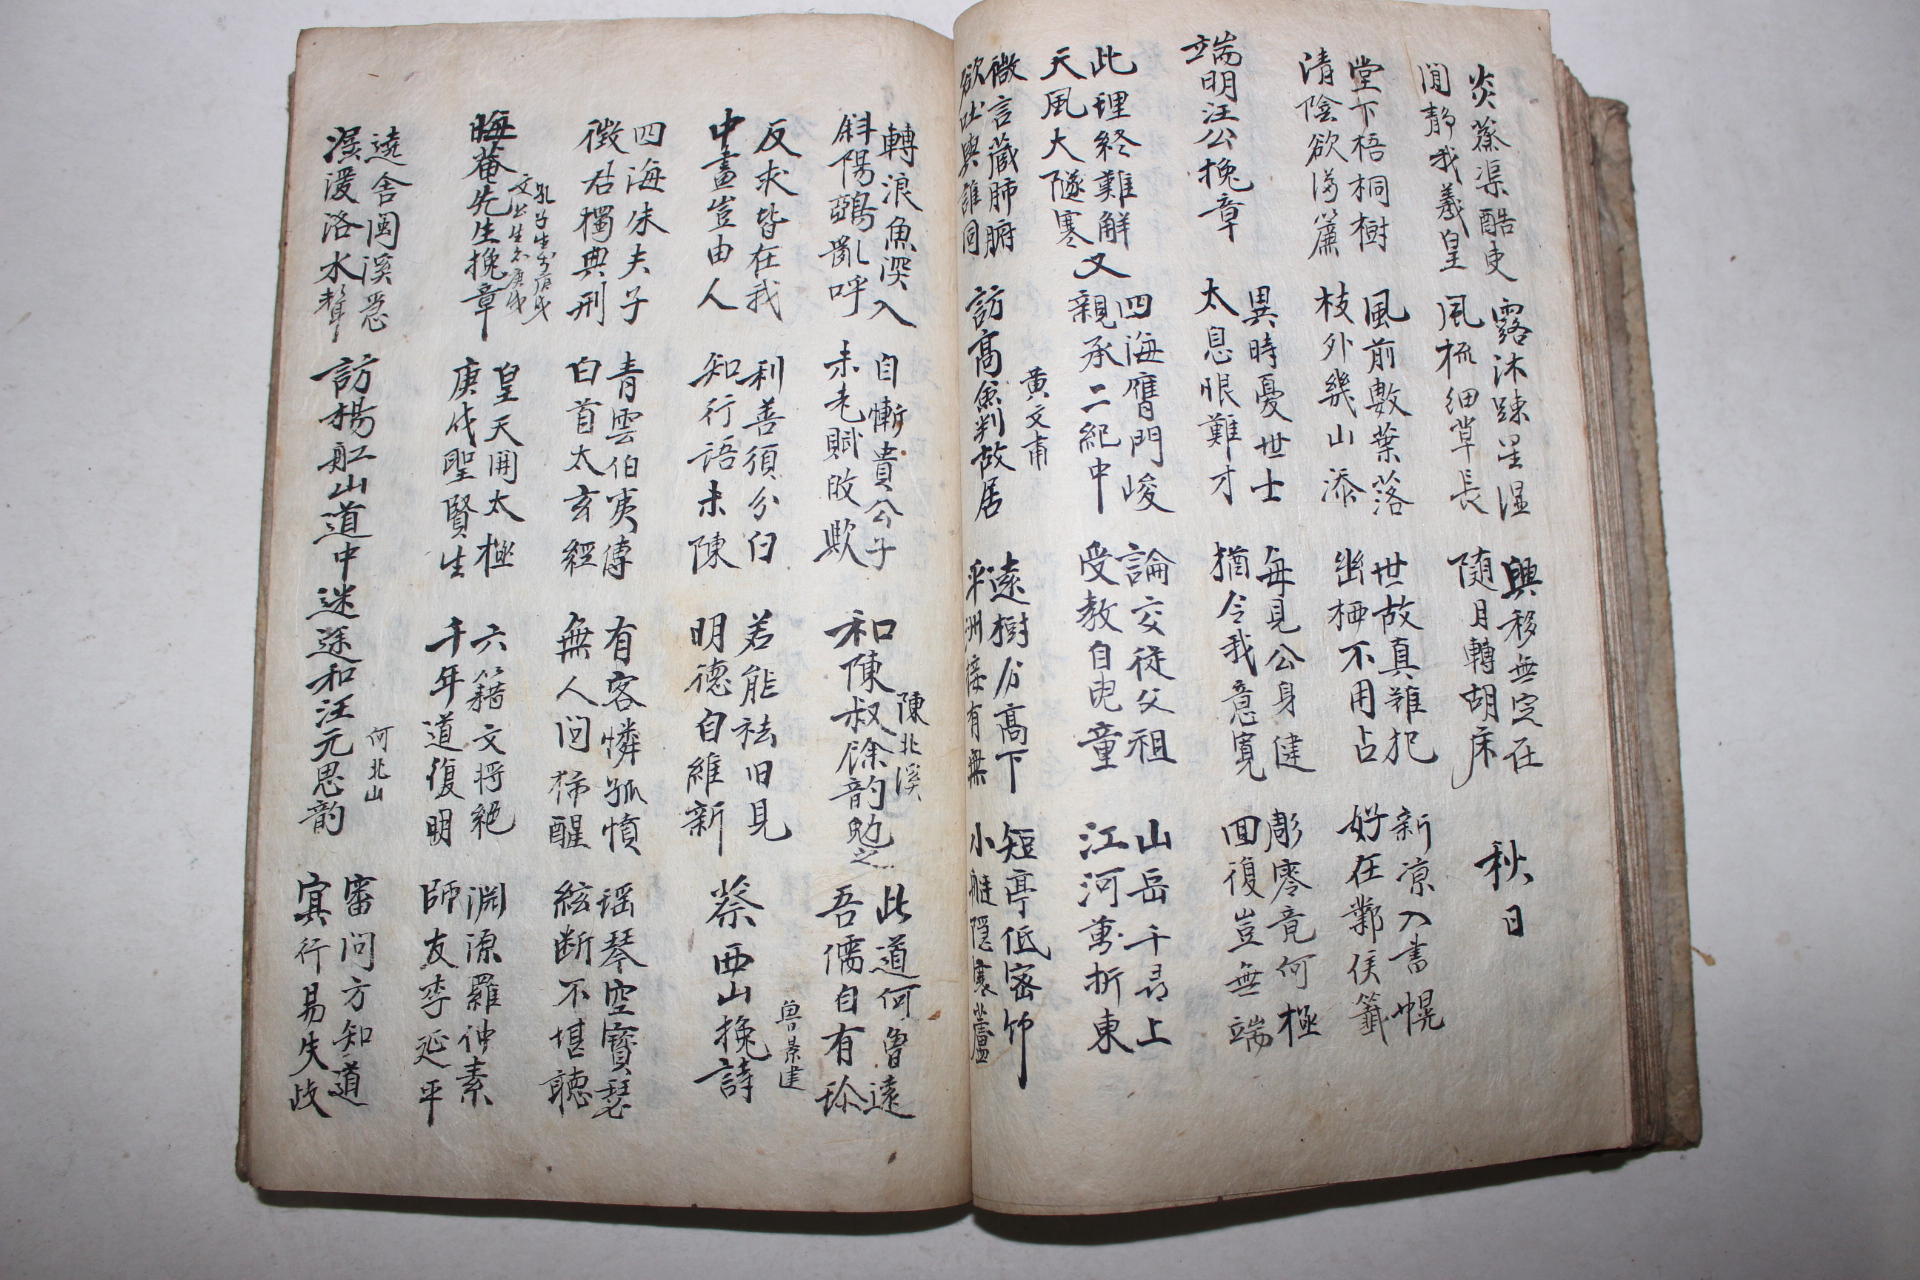 炎蒸渠酷吏
閒静我羲皇
露沐踈星濕
風梳細草長
興移無定在
隨月轉胡床
秋日
堂下梧桐樹
清陰欲滿簾
風前數葉落
枝外幾山添
世故真難犯
幽栖不用占
新凉入書幌
好在鄴侯籤
端明汪公挽章
異時憂世士
太息恨難才
每見公身健
猶令我意寬
彫零竟何極
回復豈無端
此理終難解
天風大隧寒
又
四海膺門峻
親承二紀中
論交從父祖
受教自兒童
山岳千尋上
江河萬折東
微言藏肺腑
欲吐與誰同
訪高僉判故居
黄文甫
遠樹分高下
平洲接有無
短亭低密竹
小艇隱寒蘆
轉浪魚深入
斜陽鵶亂呼
自慚貴公子
未老賦敀歟
和陳叔餘韵勉之
陳北溪
此道何曾遠
吾儒自有珎
反求皆在我
中畫豈由人
利善須分白
知行語未陳
若能祛旧見
明德自維新
蔡西山挽詩
曽景建
四海朱夫子
徵君獨典刑
青雲伯夷傳
白首太玄經
有客憐孤憤
無人问獨醒
瑶琴空寶瑟
絃断不堪聽
晦菴先生挽章
孔子生於庚戌
文公生亦庚戌
皇天開太極
庚戌聖賢生
六籍文将絕
千年道復明
渊源羅仲素
師友李延平
遶舍閩溪急
潺湲洛水聲
訪楊舡山道中迷途和汪元思韵
何北山
審问方知道
冥行易失歧